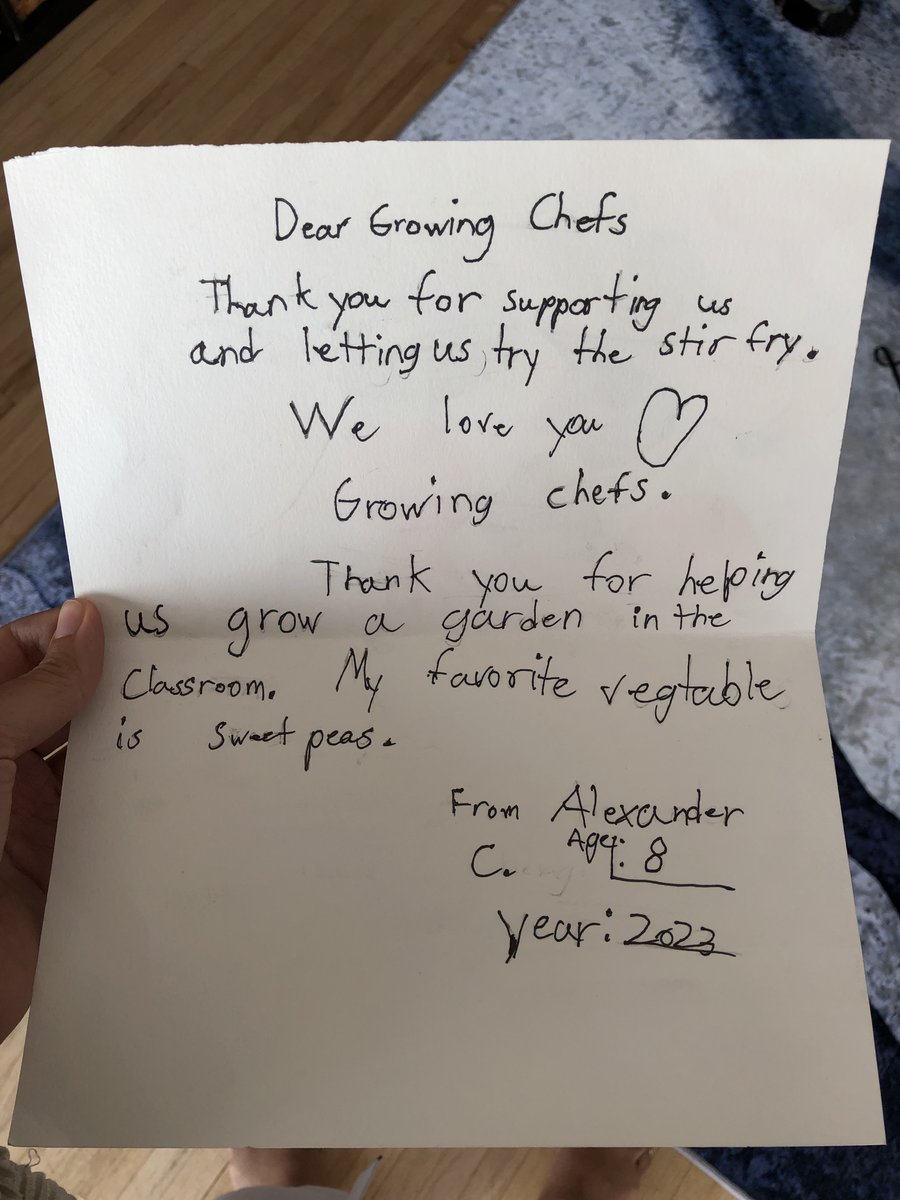 Dear Growing Chefs
Thank you for supporting us
and letting us try the stir fry.
We love you ♡
Growing chefs.
Thank you for helping
us grow a garden in the
Classroom. My favorite vegtable
is sweet peas.
From Alexander
C. Age: 8
year: 2023